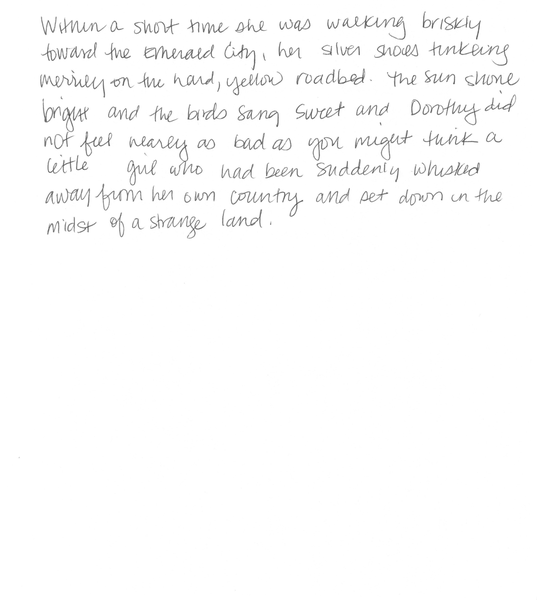 Within a short time she was walking briskly
toward the Emerald City, her silver shoes tinkling
merrily on the hard, yellow roadbed. The sun shone
bright and the birds sang sweet and Dorothy did
not feel nearly as bad as you might think a
little girl who had been suddenly whisked
away from her own country and set down in the
midst of a strange land.